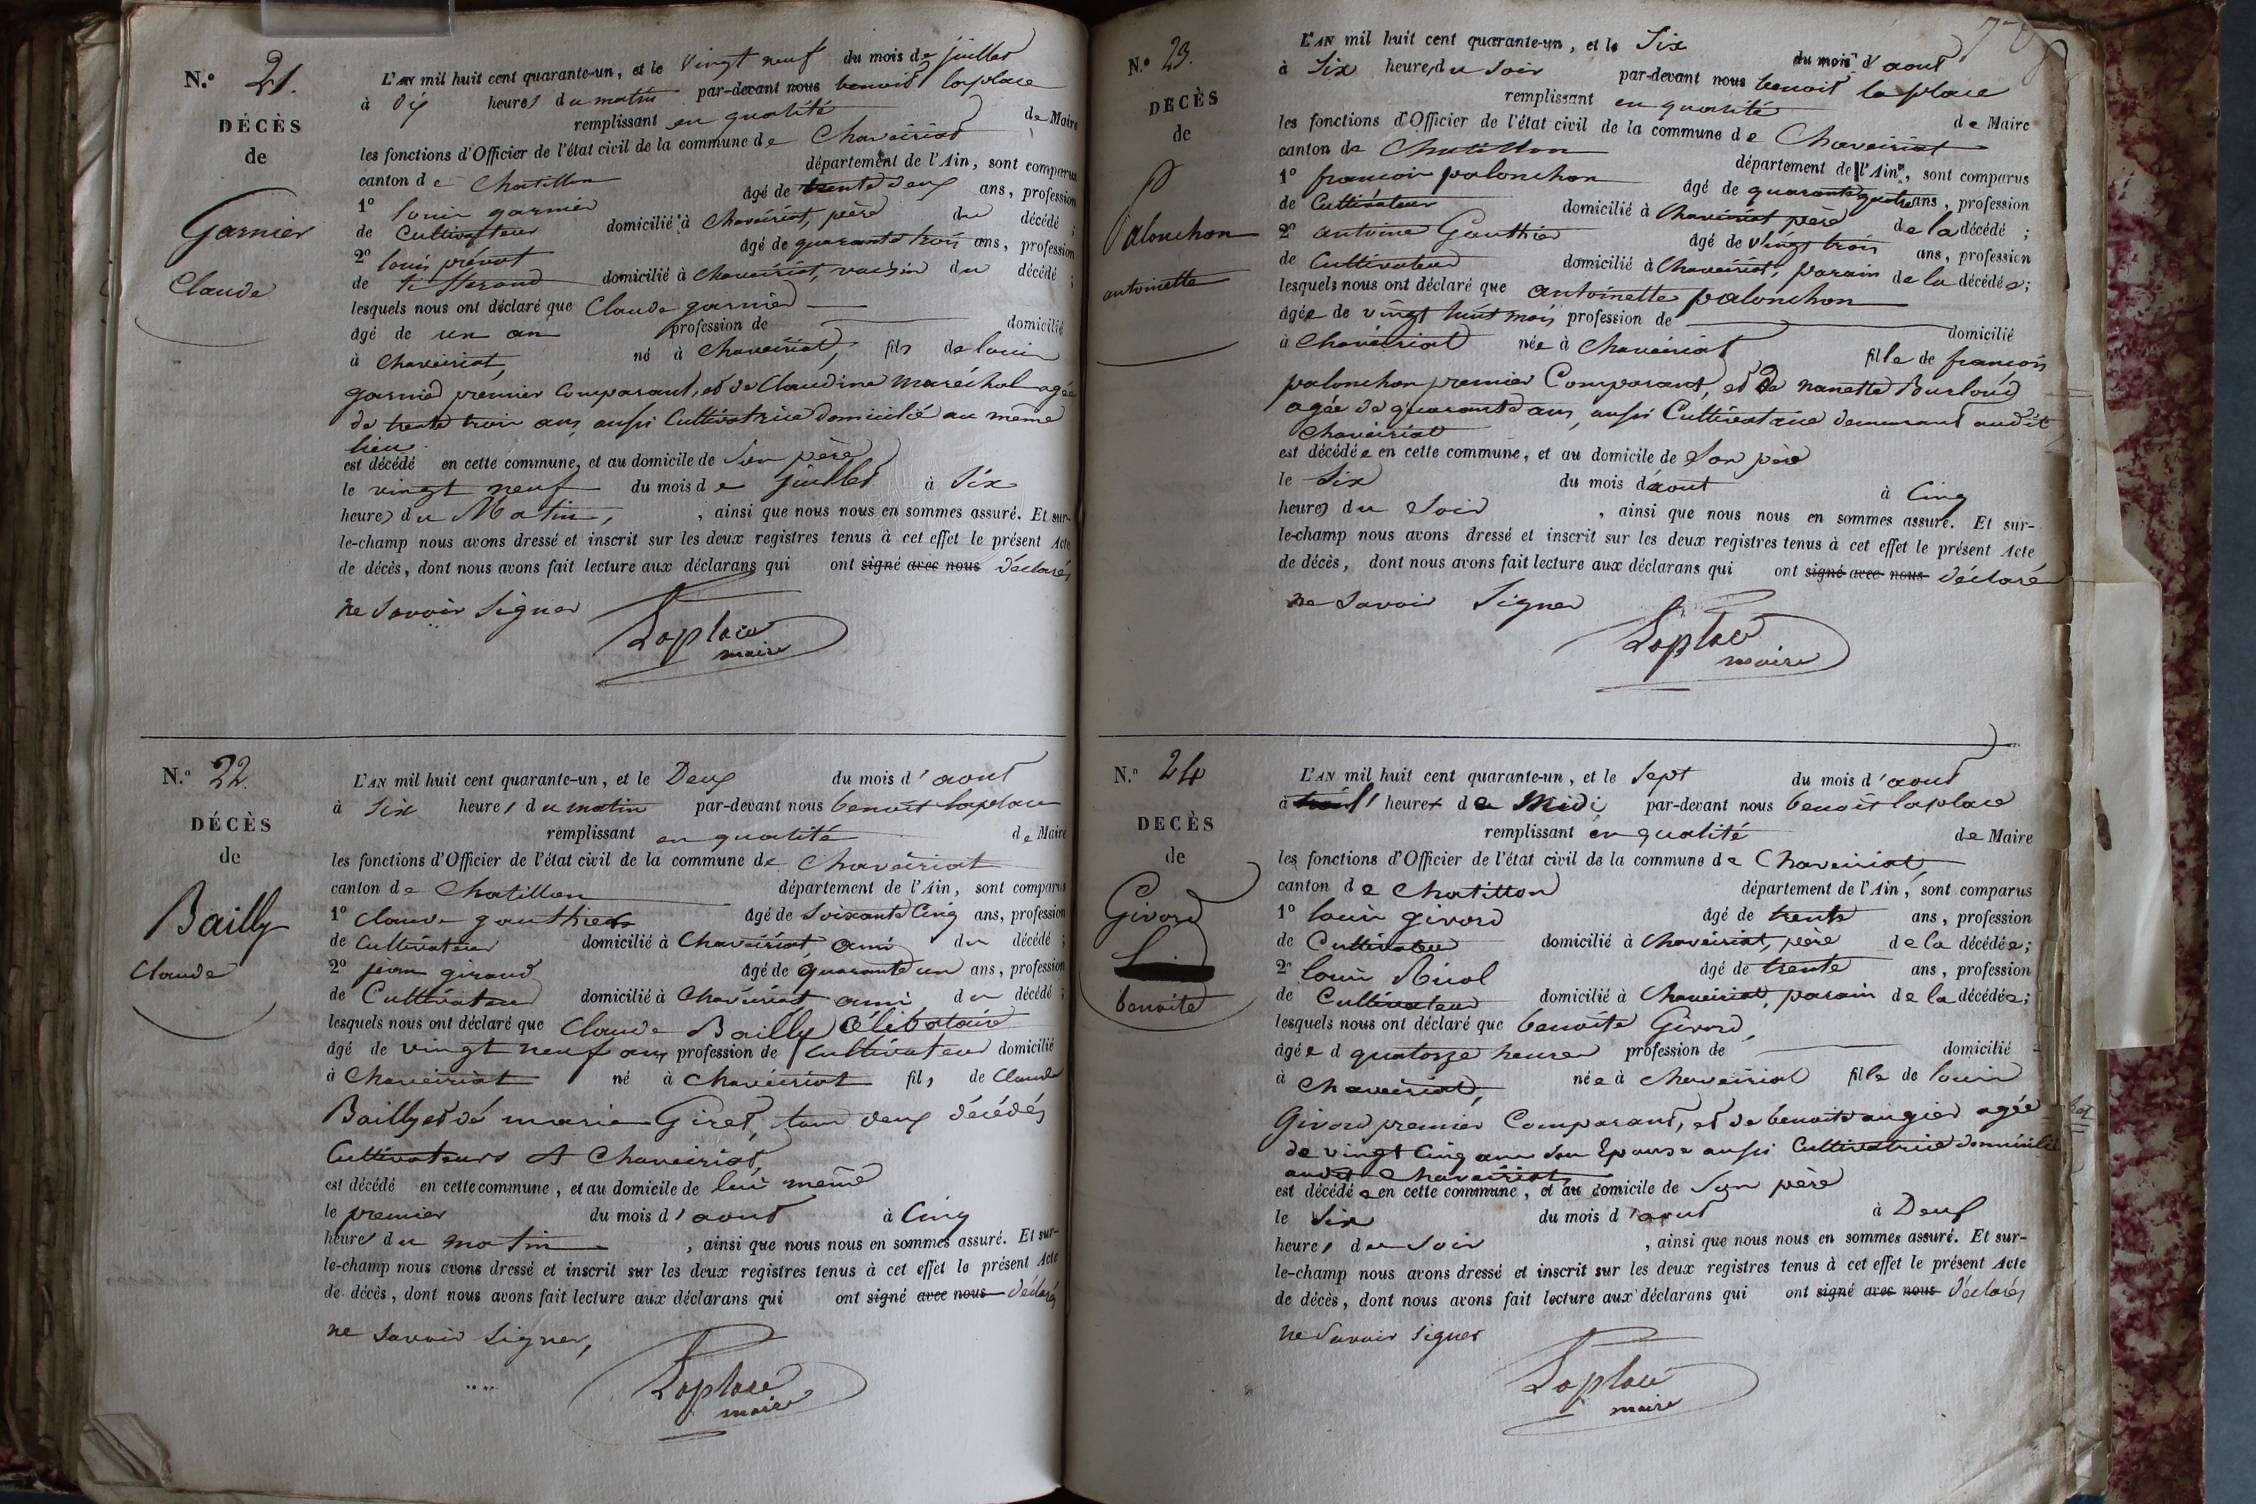 N.° 21.
DÉCÈS
de
Garnier
Claude
L'AN mil huit cent quarante-un, et le vingt neuf du mois de juillet
à dix heures du matin par-devant nous benoit laplace
remplissant en qualité de Maire
les fonctions d'Officier de l'état civil de la commune de Chaveiriat
canton de Chatillon département de l'Ain, sont comparus
1° louis garnier âgé de trente deux ans, profession
de Cultivateur domicilié à Chaveiriat, père du décédé ;
2° louis prévot âgé de quarante trois ans, profession
de tisserand domicilié à Chaveiriat, voisin du décédé ;
lesquels nous ont déclaré que Claude garnier
âgé de un an profession de domicilié
à Chaveiriat, né à Chaveiriat, fils de louis
garnier premier Comparant, et de Claudine maréchal agée
de trente trois ans, aussi Cultivatrice domicilié au même
lieu
est décédé en cette commune, et au domicile de son père
le vingt neuf du mois de juillet à Six
heures du Matin, , ainsi que nous nous en sommes assuré. Et sur-
le-champ nous avons dressé et inscrit sur les deux registres tenus à cet effet le présent Acte
de décès, dont nous avons fait lecture aux déclarans qui ont signé avec nous déclarés
ne savoir signer
Laplace
maire
N.° 22.
DÉCÈS
de
Bailly
Claude
L'AN mil huit cent quarante-un, et le Deux du mois d'aout
à Six heures du matin par-devant nous benoit laplace
remplissant en qualité de Maire
les fonctions d'Officier de l'état civil de la commune de Chaveiriat
canton de Chatillon département de l'Ain, sont comparus
1° claude gauthier âgé de soixante Cinq ans, profession
de Cultivateur domicilié à Chaveiriat ami du décédé ;
2° jean giraud âgé de quarante un ans, profession
de Cultivateur domicilié à Chaveiriat ami du décédé ;
lesquels nous ont déclaré que Claude Bailly Célibataire
âgé de vingt neuf ans profession de Cultivateur domicilié
à Chaveiriat né à Chaveiriat fils de Claude
Bailly et de marie Giret, tous deux décédés
Cultivateurs A Chaveiriat,
est décédé en cette commune, et au domicile de lui même
le premier du mois d'aout à Cinq
heures du matin , ainsi que nous nous en sommes assuré. Et sur-
le-champ nous avons dressé et inscrit sur les deux registres tenus à cet effet le présent Acte
de décès, dont nous avons fait lecture aux déclarans qui ont signé avec nous déclarés
ne savoir signer,
Laplace
maire
N.° 23.
DÉCÈS
de
Palonchon
antoinette
L'AN mil huit cent quarante-un, et le Six du mois d'aout
à Six heures du soir par-devant nous benoit la place
remplissant en qualité de Maire
les fonctions d'Officier de l'état civil de la commune de Chaveiriat
canton de Chatillon département de l'Ain, sont comparus
1° francois palonchon âgé de quarante quatre ans, profession
de Cultivateur domicilié à Chaveiriat père de la décédé ;
2° antoine Gauthier âgé de vingt trois ans, profession
de Cultivateur domicilié à Chaveiriat, parain de la décédée ;
lesquels nous ont déclaré que antoinette palonchon
âgée de vingt huit mois profession de domicilié
à Chaveiriat née à Chaveiriat fille de francois
palonchon premier Comparant, et de nanette Burloud
agée de quarante ans, aussi Cultivatrice demeurant audit
Chaveiriat
est décédée en cette commune, et au domicile de son père
le Six du mois d'aout à Cinq
heures du soir , ainsi que nous nous en sommes assuré. Et sur-
le-champ nous avons dressé et inscrit sur les deux registres tenus à cet effet le présent Acte
de décès, dont nous avons fait lecture aux déclarans qui ont signé avec nous déclaré
ne savoir signer
Laplace
maire
N.° 24
DÉCÈS
de
Givord
benoite
L'AN mil huit cent quarante-un, et le sept du mois d'aout
à heures de Midi par-devant nous benoit laplace
remplissant en qualité de Maire
les fonctions d'Officier de l'état civil de la commune de Chaveiriat
canton de Chatillon département de l'Ain, sont comparus
1° louis givord âgé de trente ans, profession
de Cultivateur domicilié à Chaveiriat, père de la décédée ;
2° louis Nicol âgé de trente ans, profession
de Cultivateur domicilié à Chaveiriat, parain de la décédée ;
lesquels nous ont déclaré que benoite Givord,
âgée d quatorze heures profession de domicilié
à Chaveiriat, née à Chaveiriat fille de louis
Givord premier Comparant, et de benoite augier agée
de vingt Cinq ans son Epouse aussi Cultivatrice domicilié
audit Chaveiriat,
est décédée en cette commune, et au domicile de son père
le six du mois d'aout à Deux
heures du soir , ainsi que nous nous en sommes assuré. Et sur-
le-champ nous avons dressé et inscrit sur les deux registres tenus à cet effet le présent Acte
de décès, dont nous avons fait lecture aux déclarans qui ont signé avec nous déclarés
ne savoir signer
Laplace
maire